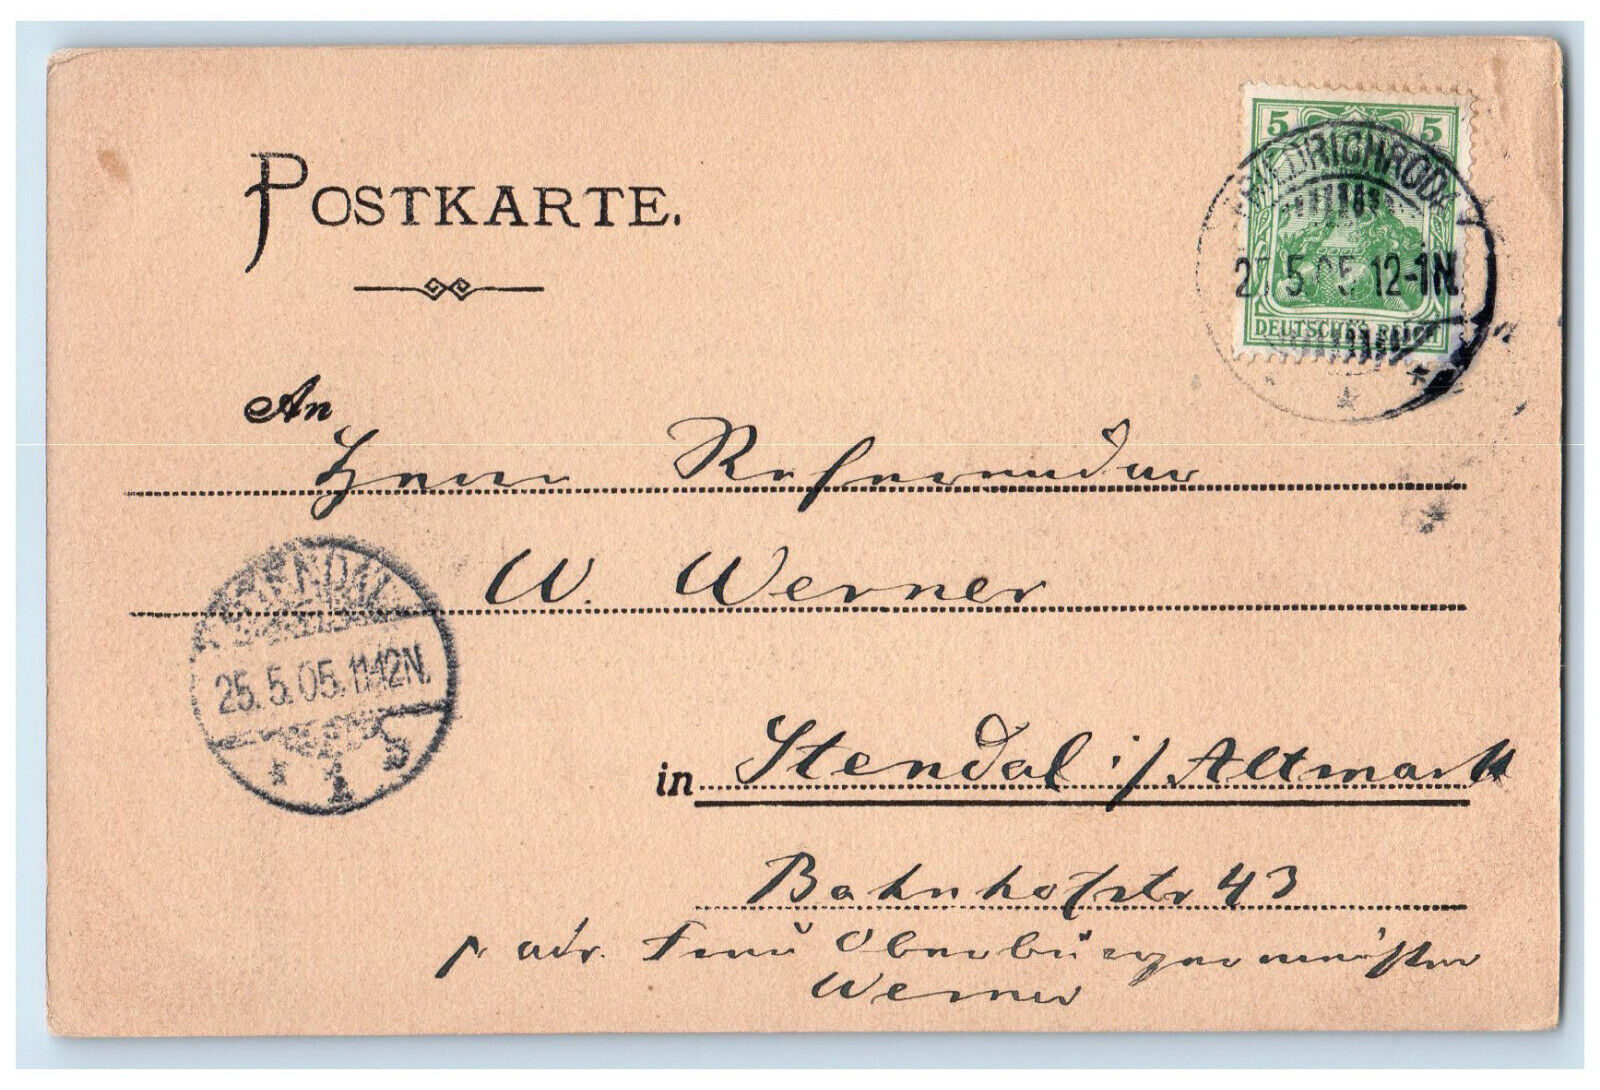 POSTKARTE.
5 5
FRIEDRICHRODA
5.05.12-1N.
DEUTSCHES REICH
An
Herrn Referendar
W. Werner
STENDAL
25.5.05.11-12N.
in Stendal i/Altmark
Bahnhofstr 43
p. adr. Frau Oberbürgermeister
Werner